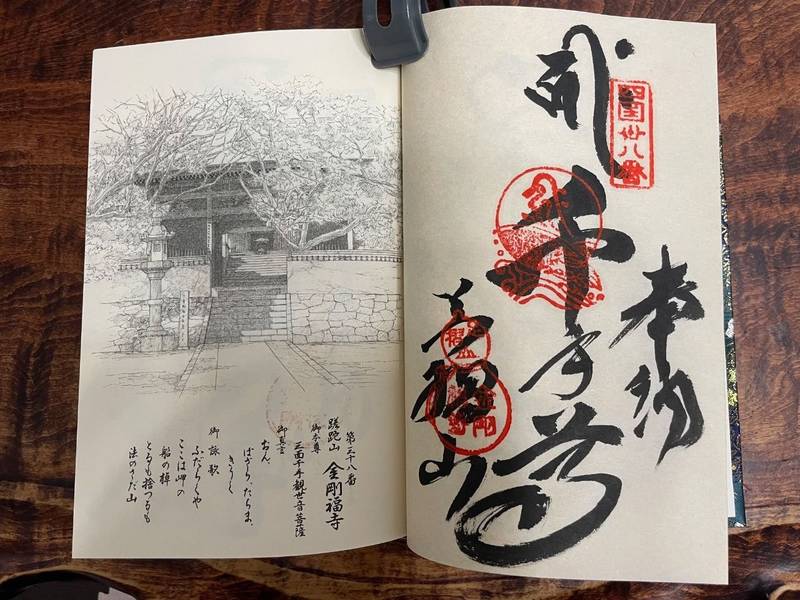 奉納
四国卅八番
千手
第三十八番
蹉跎山 金剛福寺
御本尊
三面千手観世音菩薩
御真言
おん、
ばさら、たらま、
きりく
御詠歌
ふだらくや
ここは岬の
船の棹
とるも捨つるも
法のさだ山